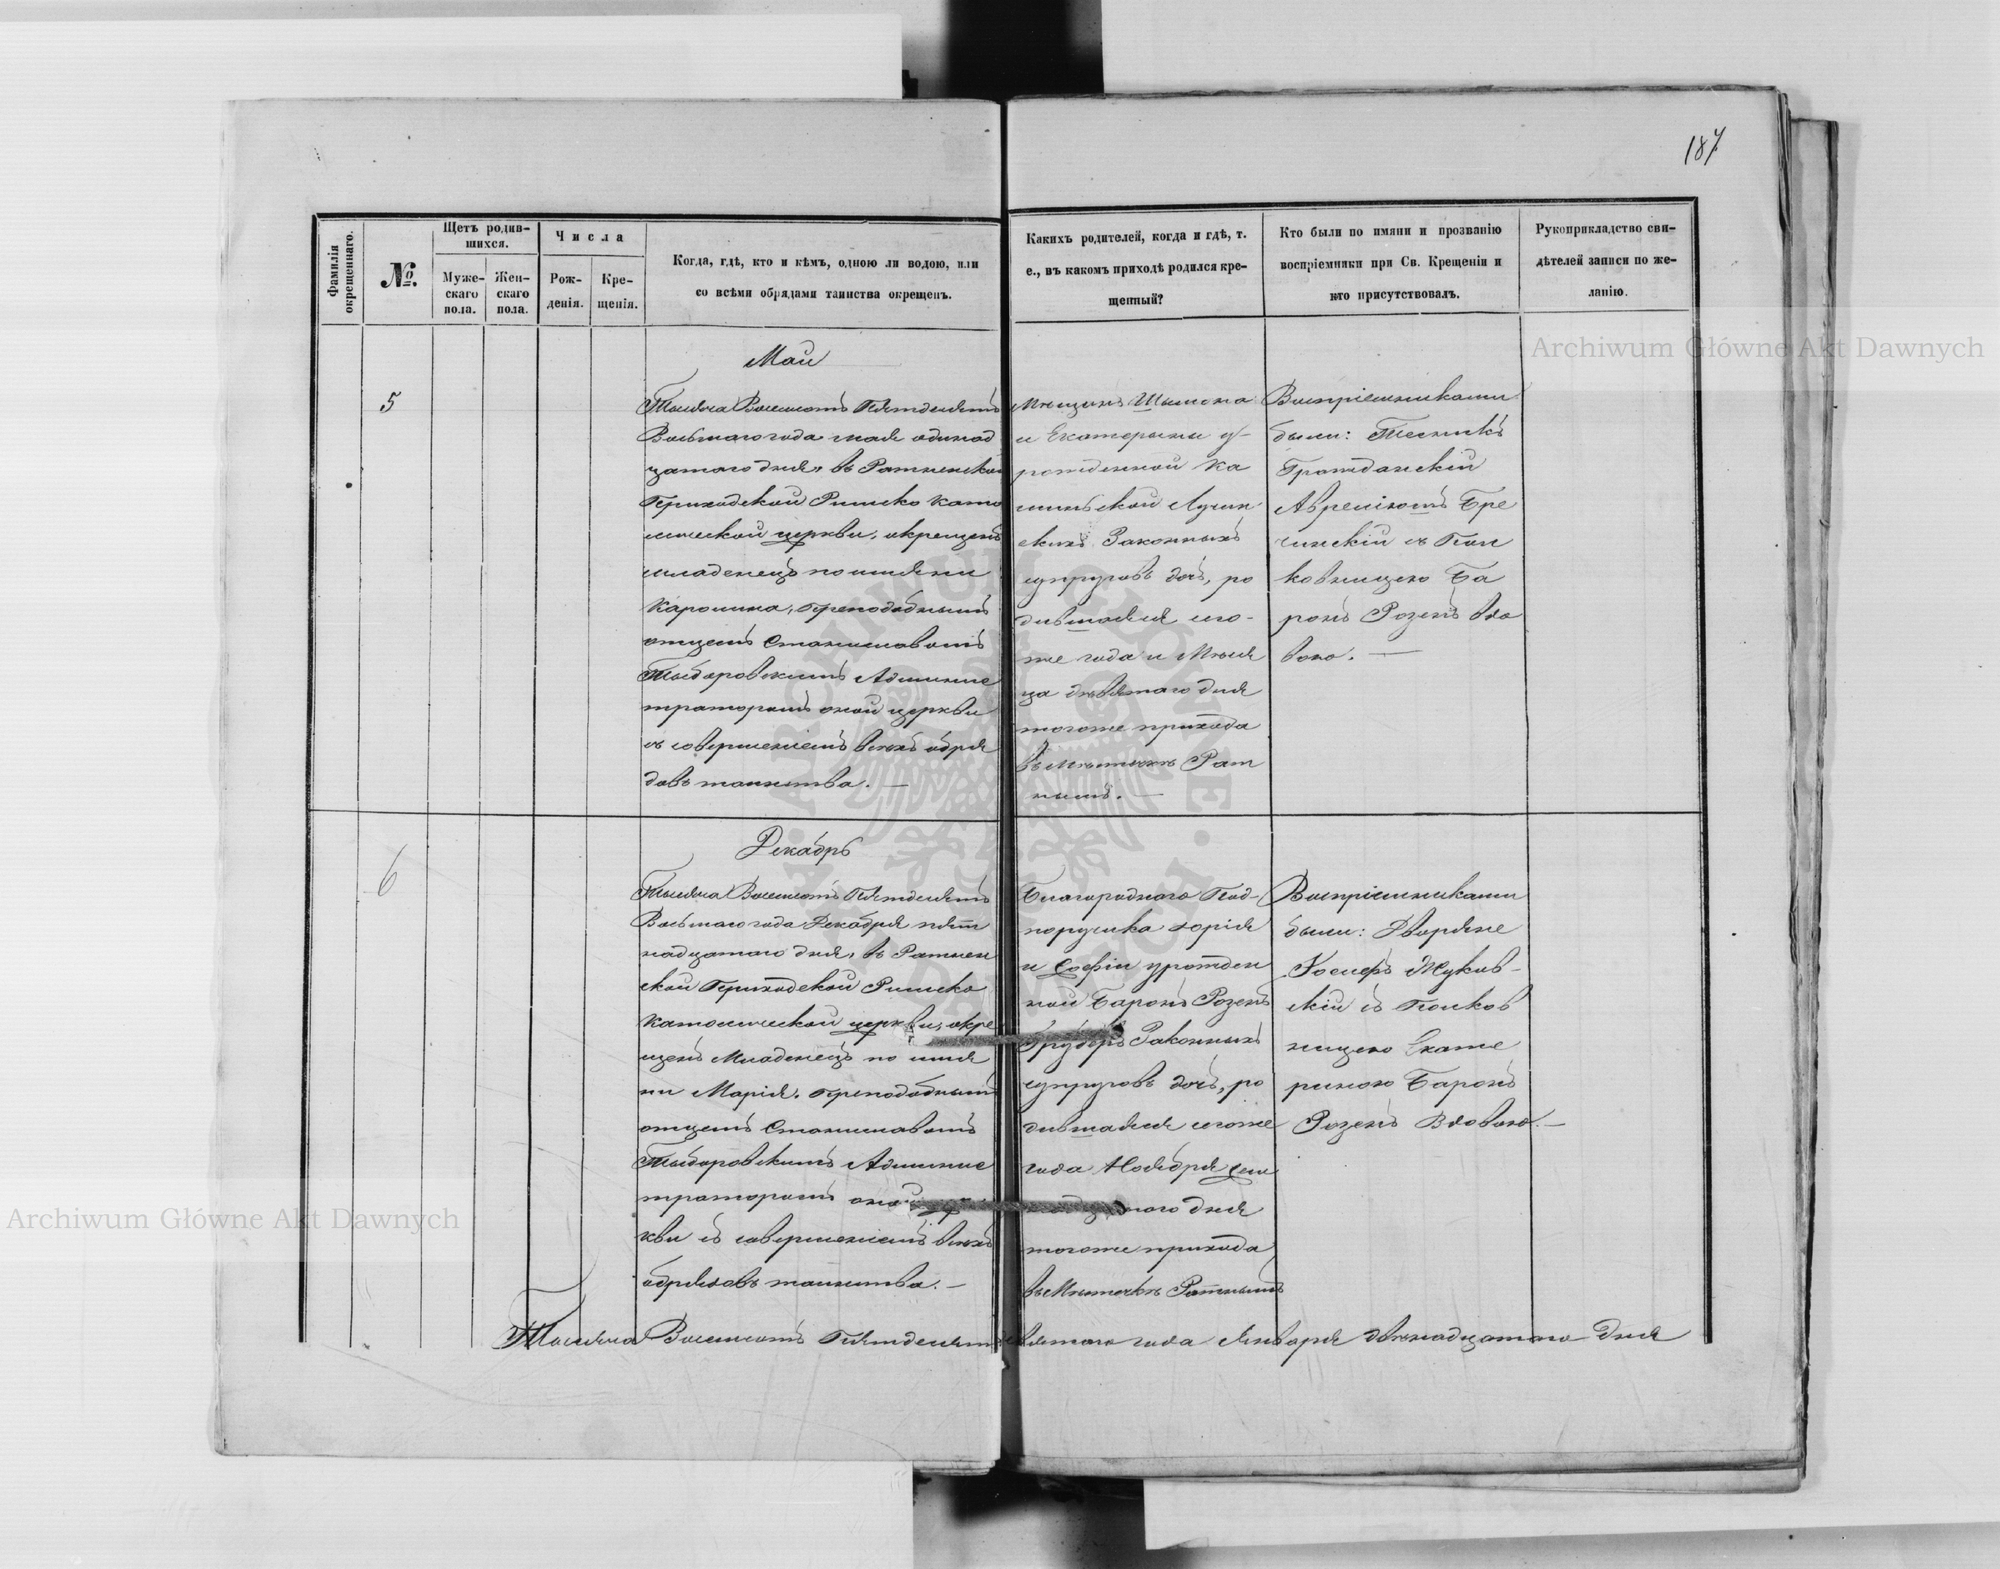 187
Фамилія
окрещеннаго.
№.
Щетъ родив-
шихся.
Муже-
скаго
пола.
Жен-
скаго
пола.
Числа
Рож-
денія.
Кре-
щенія.
Когда, гдѣ, кто и кѣмъ, одною ли водою, или
со всѣми обрядами таинства окрещенъ.
Какихъ родителей, когда и гдѣ, т.
е., въ какомъ приходѣ родился кре-
щенный?
Кто были по имяни и прозванію
воспріемники при Св. Крещеніи и
кто присутствовалъ.
Рукоприкладство сви-
дѣтелей записи по же-
ланію.
Archiwum Główne Akt Dawnych
Май
5
Тысяча Восемсотъ Пятдесятъ
Восьмаго года мая одинад
цатаго дня, въ Ратненской
Приходской Римско Като
лической церкви, окрещенъ
младенецъ по имяни
Каролина, Преподобнымъ
отцемъ Станиславомъ
Тыборовскимъ Админис
траторомъ оной церкви
съ совершеніемъ всѣхъ обря
довъ таинства. —
Мѣщанъ Шымона
и Екатерыны у-
рожденной Ка
минской Лучин
скихъ Законныхъ
супруговъ дочь, ро
дившаяся сего-
же года и Мѣся
ца девятаго дня
тогоже прихода
въ Мѣстечкѣ Рат
нымъ. —
Воспріемниками
были:
Гражданскій
Бре
чинскій съ Пол
ковницею Ба
ронъ Розенъ вдо
вою. —
Декабрь
6
Тысяча Восемсотъ Пятдесятъ
Восьмаго года Декабря пят
надцатаго дня, въ Ратнен
ской Приходской Римско
католической церкви, окре
щенъ Младенецъ по имя
ни Марія, Преподобнымъ
отцемъ Станиславомъ
Тыборовскимъ Админис
траторомъ оной цер
кви съ совершеніемъ всѣхъ
обрядовъ таинства. —
Благороднаго Под-
поручика Юрія
и Софіи урожден
ной Баронъ Розенъ
Законныхъ
супруговъ дочь, ро
дившаяся сегоже
года Ноября сем
дня
тогоже прихода
въ Мѣстечкѣ Ратнымъ
Воспріемниками
были: Дворяне
Іосифъ Жуков-
скій съ Полков
ницею Екате
риною Баронъ
Розенъ Вдовою. —
Archiwum Główne Akt Dawnych
Тысяча Восемсотъ Пятдесятъ девятаго года Января двѣнадцатаго дня